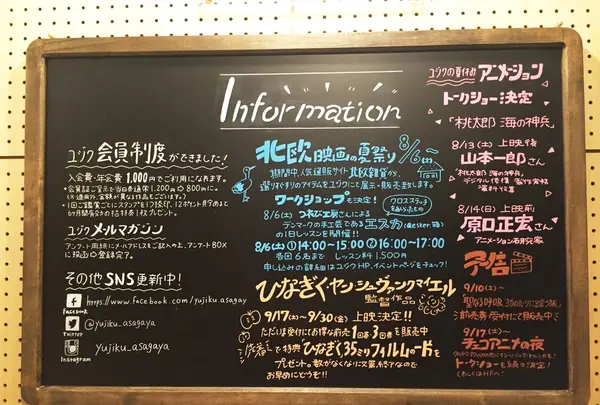 Information
ユジク 会員制度ができました!
入会費・年会費 1,000円でご利用になれます。
*会員証ご呈示で当日券通常1,200円→800円に。
ユジクメールマガジン
アンケート用紙にメールアドレスをご記入の上、アンケートBOX
に投函→登録完了。
その他SNS更新中!
https://www.facebook.com/yujiku.asagaya
Facebook
@yujiku_asagaya
Twitter
yujiku_asagaya
Instagram
北欧映画の夏祭り 8/6(土)~
期間中、人気通販サイト北欧雑貨から、
選りすぐりのアイテムをユジクにて展示・販売致します。
ワークショップも決定!
クロスステッチ
8/6(土)つきむら工房さんによる
デンマークの手工芸であるエスカ(æsker.箱)
の1日レッスンを開催!!
8/6(土) ①14:00~15:00 ②16:00~17:00
各回6名まで レッスン料1,500円
申し込みの詳細はユジクHP、イベントページをチェック!
ひなぎく ヤン・シュヴァンクマイエル
監督作品
9/17(土)~9/30(金)上映決定!!
ただいま受付にてお得な前売1回券・3回券を販売中
特典 ひなぎく35ミリフィルムのしおりを
プレゼント。数がなくなり次第、終了なので
お早めにどうぞ!!
ユジクの夏休みアニメーション
トークショー決定
「桃太郎 海の神兵」
8/13(土)上映後
山本一郎さん
「桃太郎 海の神兵」
デジタル修復
8/14(日)上映前
原口正宏さん
アニメーション研究家
予告
9/10(土)~
前売券受付にて販売中
9/17(土)~
チェコアニメの夜
トークショーも続々決定!
くわしくはHPへ!